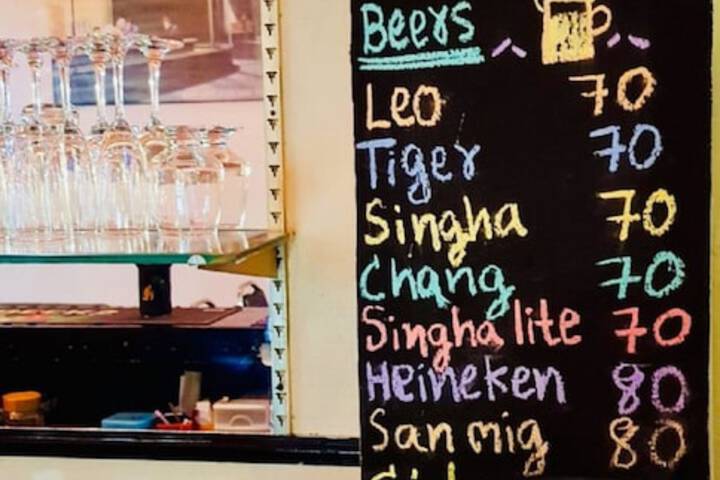 Beers
Leo 70
Tiger 70
Singha 70
Chang 70
Singha lite 70
Heineken 80
San mig 80